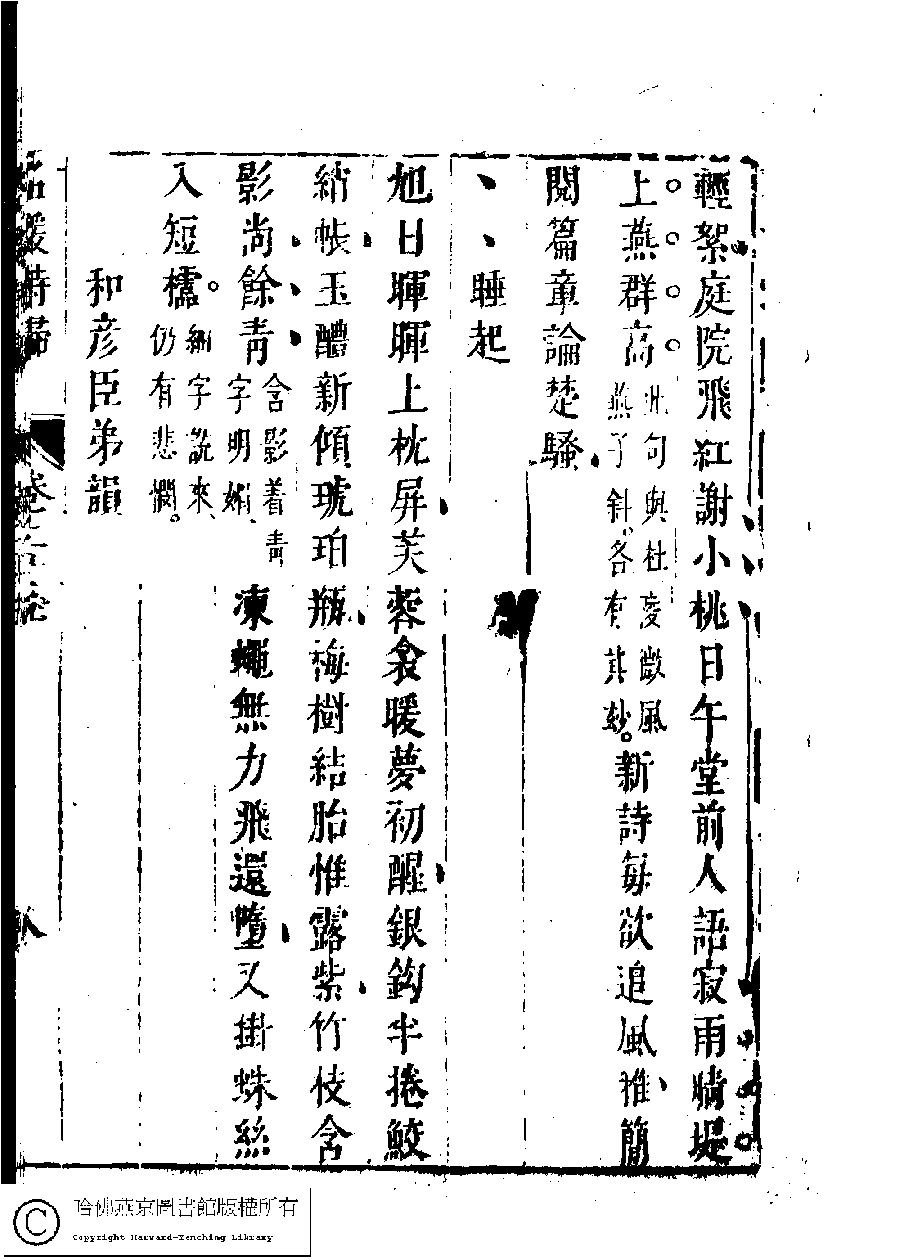 輕絮庭院飛紅謝小桃日午堂前人語寂雨晴堤
上燕群高此句與杜老微風燕子斜各有其妙。新詩每欲追風雅簡
閱篇章論楚騷
睡起
旭日暉暉上枕屏芙蓉衾暖夢初醒銀鈎半捲鮫
綃帳玉醴新傾琥珀瓶梅樹結胎惟露紫竹枝含
影尚餘青含影着青字明娟、凍蠅無力飛還墮又掛蛛絲
入短櫺。細字說來、仍有悲憫。
和彥臣弟韻
名媛詩歸
卷
八
哈佛燕京圖書館版權所有
Copyright Harvard-Yenching Library